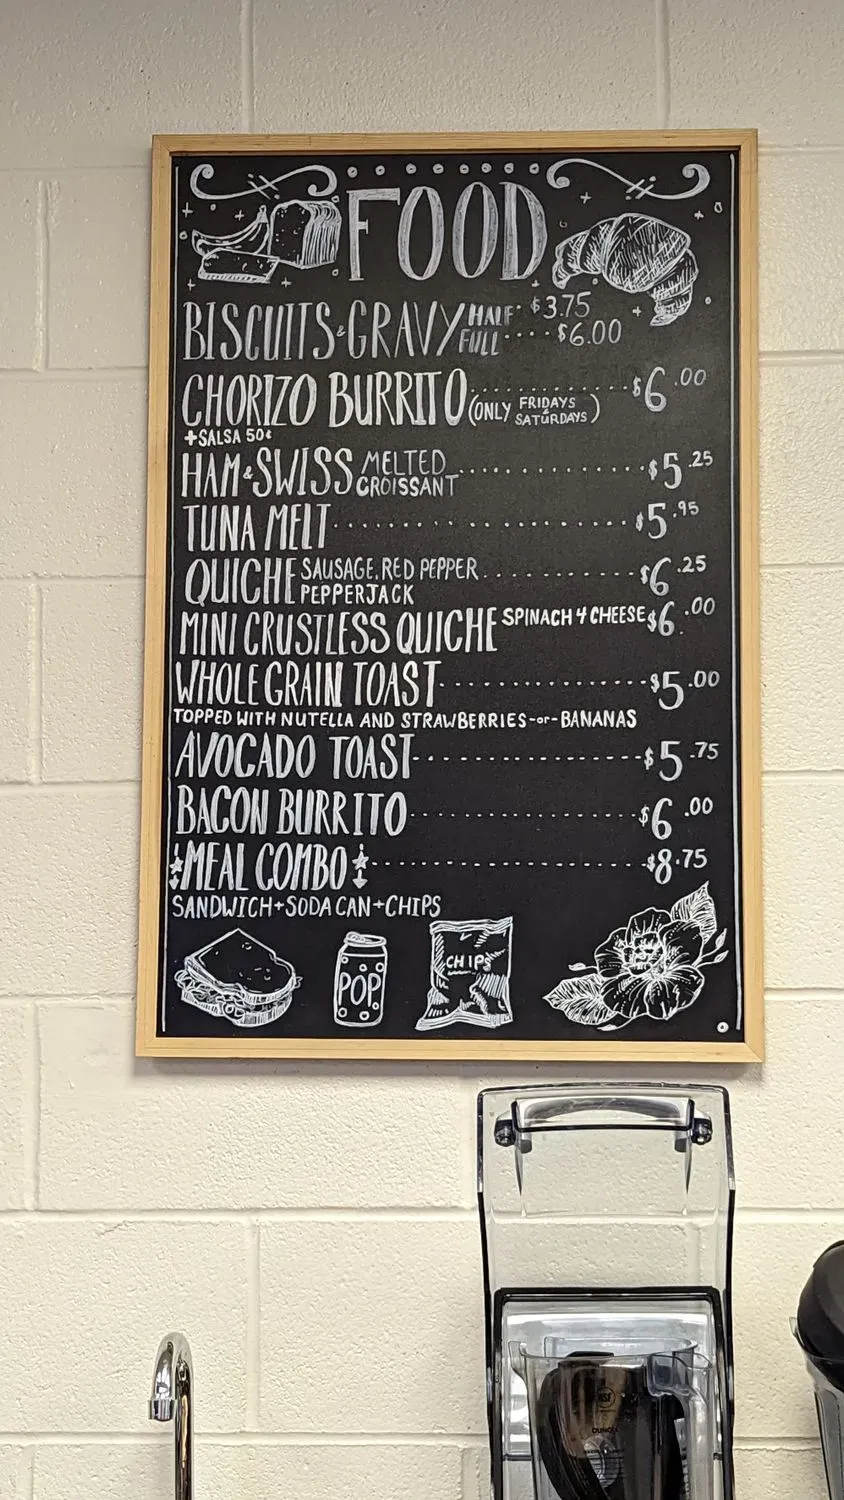 FOOD
BISCUITS & GRAVY HALF $3.75
FULL .... $6.00
CHORIZO BURRITO (ONLY FRIDAYS & SATURDAYS) $6.00
+SALSA 50¢
HAM & SWISS MELTED CROISSANT $5.25
TUNA MELT $5.95
QUICHE SAUSAGE, RED PEPPER $6.25
PEPPERJACK
MINI CRUSTLESS QUICHE SPINACH 4 CHEESE $6.00
WHOLE GRAIN TOAST $5.00
TOPPED WITH NUTELLA AND STRAWBERRIES -or- BANANAS
AVOCADO TOAST $5.75
BACON BURRITO $6.00
MEAL COMBO $8.75
SANDWICH + SODA CAN + CHIPS
POP
CHIPS
NSF